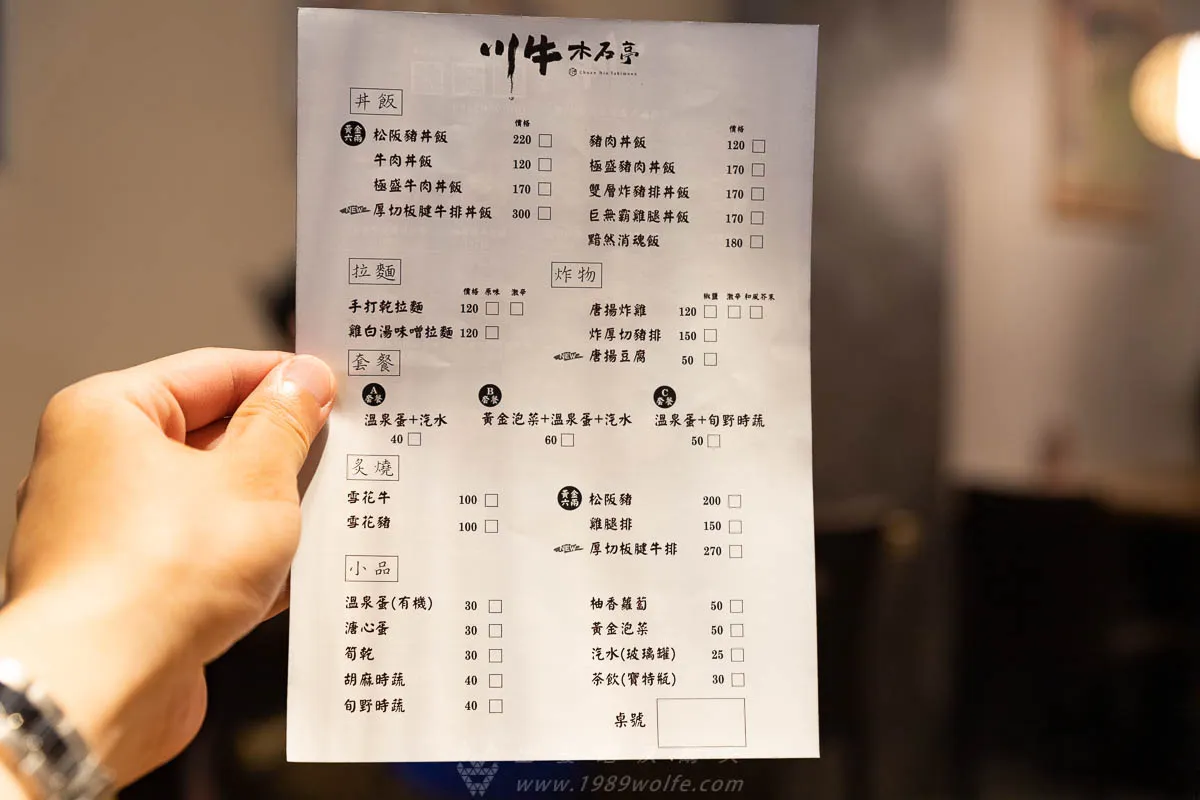 川牛 木石亭
Chuan Niu Yakiniku
丼飯
價格
黃金六兩 松阪豬丼飯 220
牛肉丼飯 120
極盛牛肉丼飯 170
NEW 厚切板腱牛排丼飯 300
價格
豬肉丼飯 120
極盛豬肉丼飯 170
雙層炸豬排丼飯 170
巨無霸雞腿丼飯 170
黯然消魂飯 180
拉麵
價格 原味 激辛
手打乾拉麵 120
雞白湯味噌拉麵 120
炸物
椒鹽 激辛 和風芥末
唐揚炸雞 120
炸厚切豬排 150
NEW 唐揚豆腐 50
套餐
A套餐
溫泉蛋+汽水
40
B套餐
黃金泡菜+溫泉蛋+汽水
60
C套餐
溫泉蛋+旬野時蔬
50
炙燒
雪花牛 100
雪花豬 100
黃金六兩 松阪豬 200
雞腿排 150
NEW 厚切板腱牛排 270
小品
溫泉蛋(有機) 30
溏心蛋 30
筍乾 30
胡麻時蔬 40
旬野時蔬 40
柚香蘿蔔 50
黃金泡菜 50
汽水(玻璃罐) 25
茶飲(寶特瓶) 30
桌號
www.1989wolfe.com